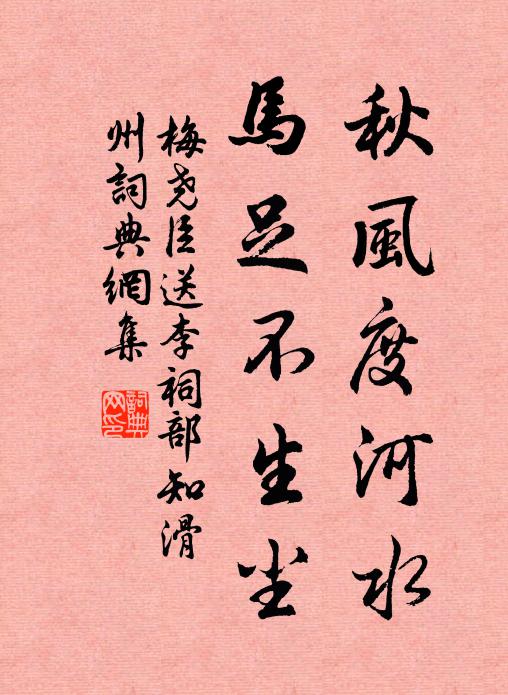 秋風度河水
馬足不生尘
梅尧臣送李祠部知滑
州詞典網集
詞典网印